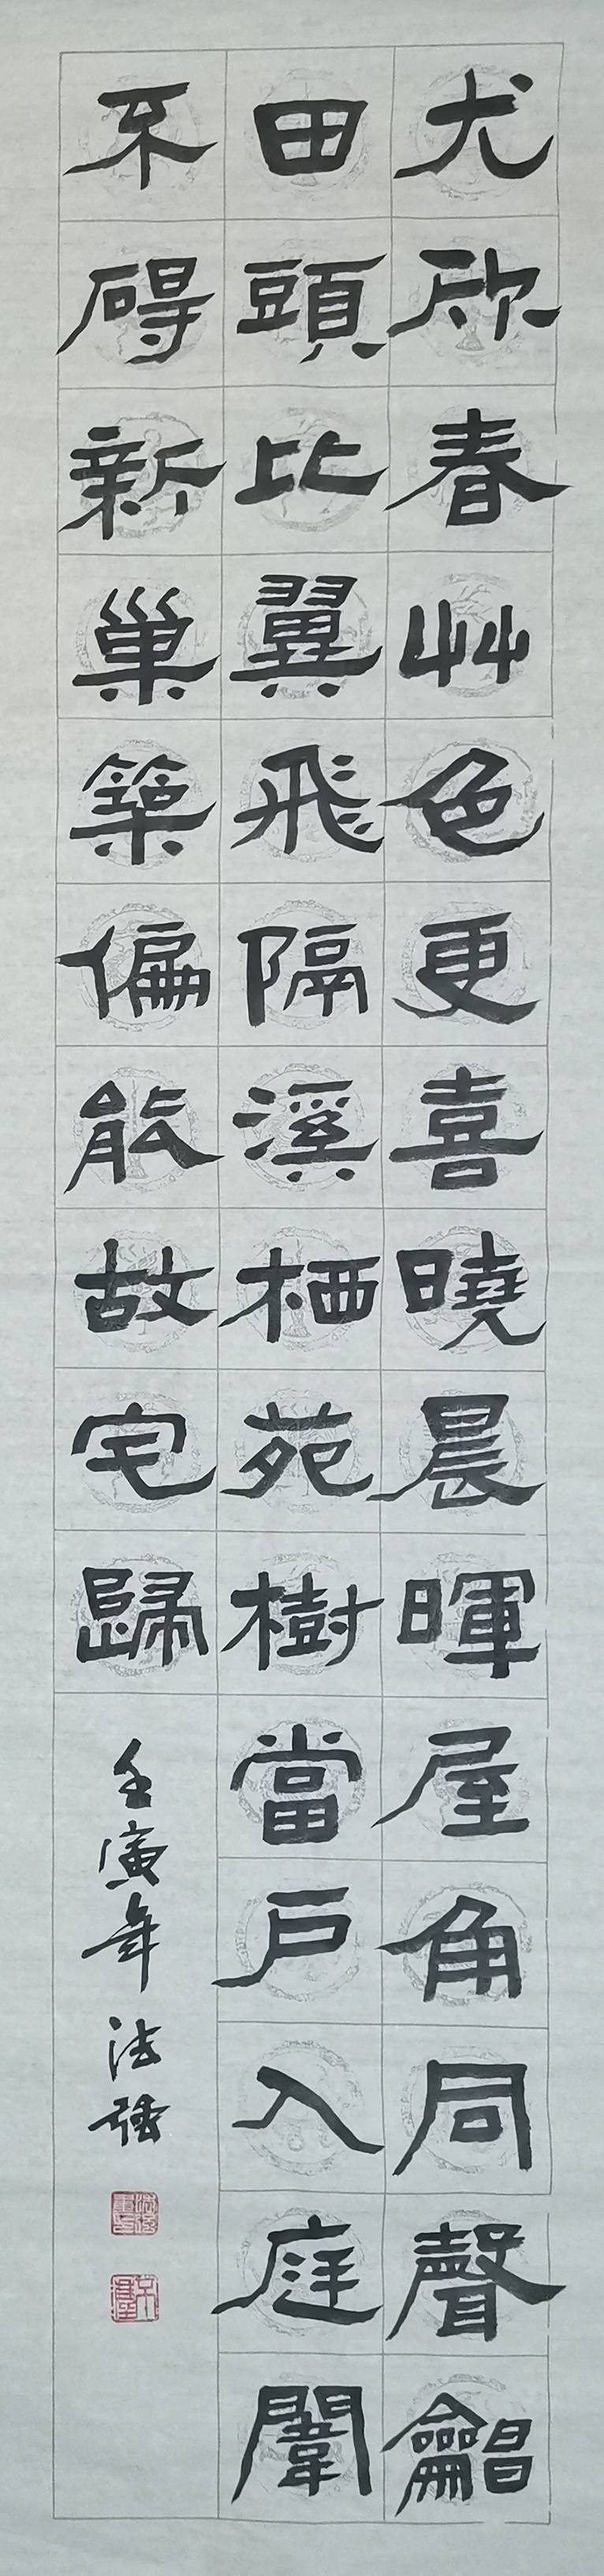 尤欣春艸色更喜曉晨暉屋角同聲
田頭比翼飛隔溪栖苑樹當戶入庭闈
不碍新巢築偏能故宅歸
壬寅年 法強